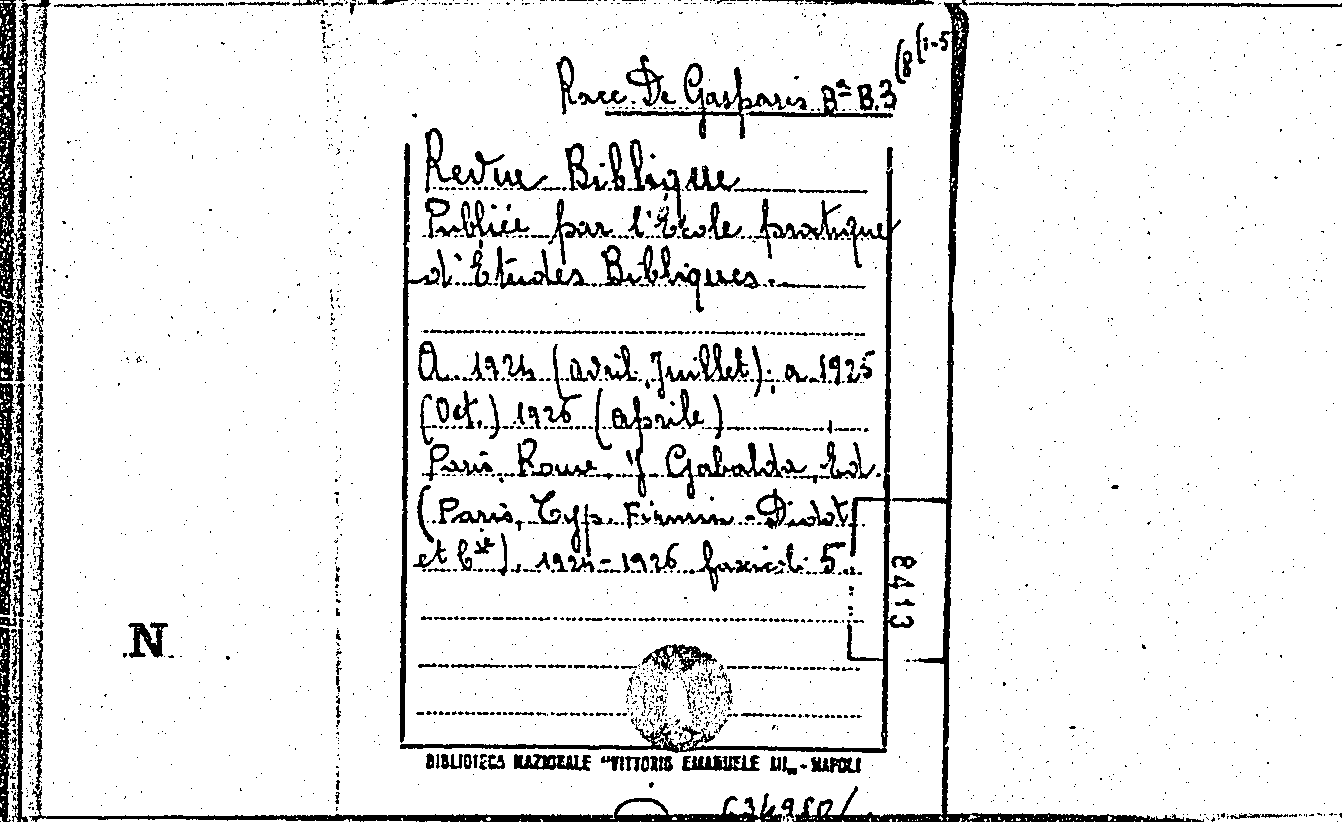 Racc. De Gasparis Bª B.3 (8 (1-5
Revue Biblique
Publiée par l'École pratique
d'Études Bibliques.
A. 1924 (avril, Juillet); a 1925
(Oct.) 1926 (aprile)
Paris, Rome, J. Gabalda, Ed.
(Paris, Typ. Firmin-Didot
et Cie). 1924-1926 fascicoli 5.
8413
N
BIBLIOTECA NAZIONALE "VITTORIO EMANUELE III„ - NAPOLI